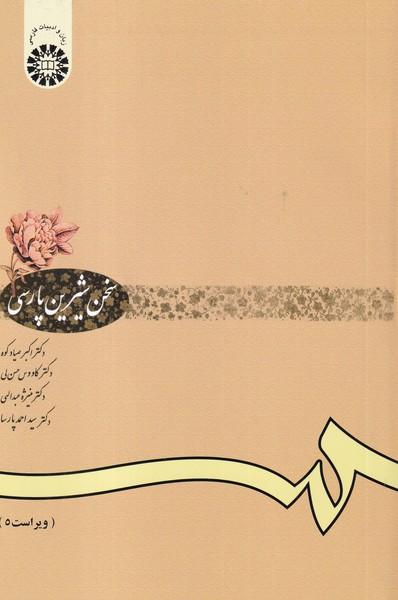 زبان و ادبیات فارسی
سخن شیرین پارسی
دکتر اکبر صیادکوه
دکتر کاووس حسن‌لی
دکتر منیژه عبدالهی
دکتر سید احمد پارسا
(ویراست ۵)